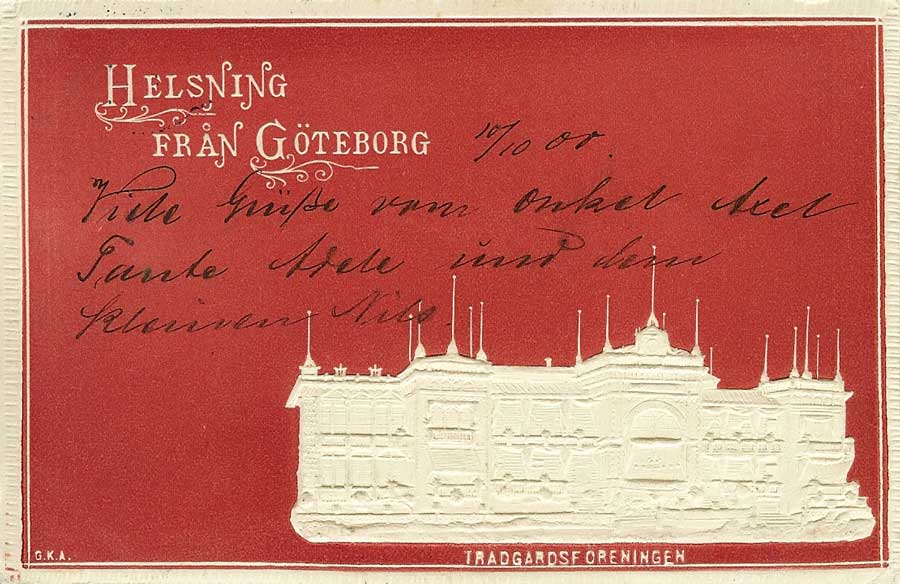 HELSNING
FRÅN GÖTEBORG
10/10 00.
Viele Grüße vom Onkel Axel
Tante Adele und dem
kleinen Nils.
G.K.A.
TRÄDGÅRDSFÖRENINGEN